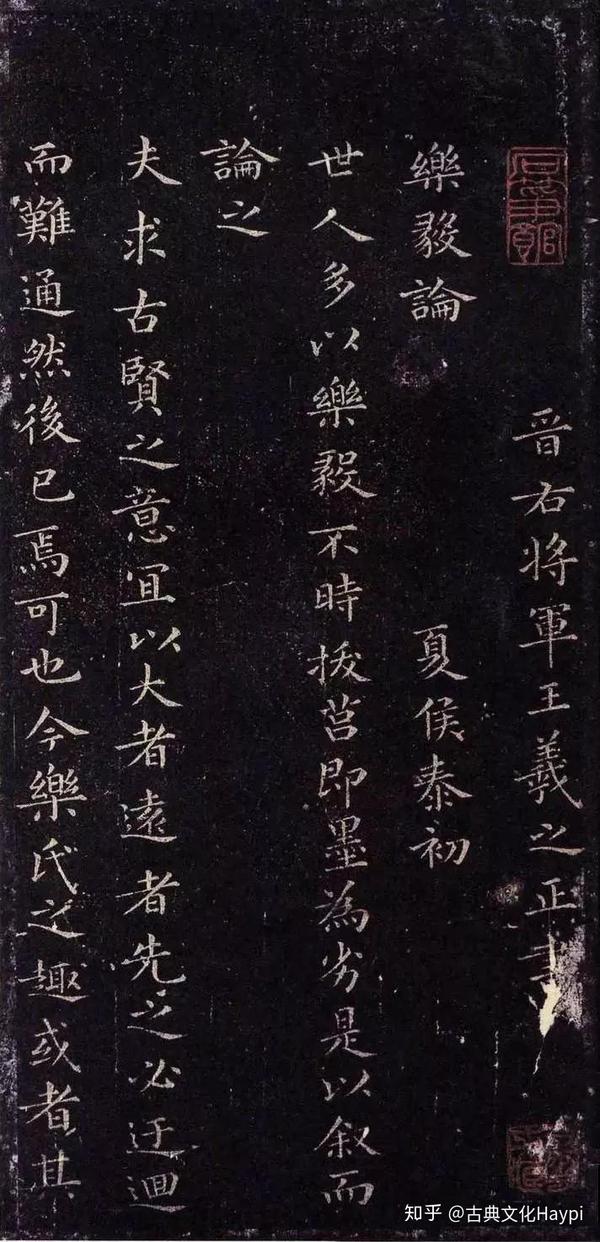 晉右将軍王羲之正書
樂毅論
夏侯泰初
世人多以樂毅不時拔莒即墨為劣是以叙而
論之
夫求古賢之意宜以大者遠者先之必迂迴
而難通然後已焉可也今樂氏之趣或者其
知乎 @古典文化Haypi